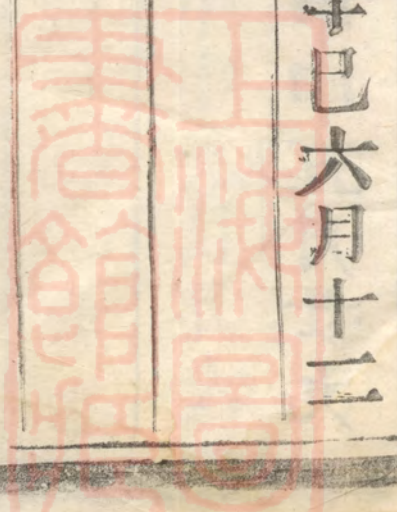 辛巳六月十二
上海圖
書館藏